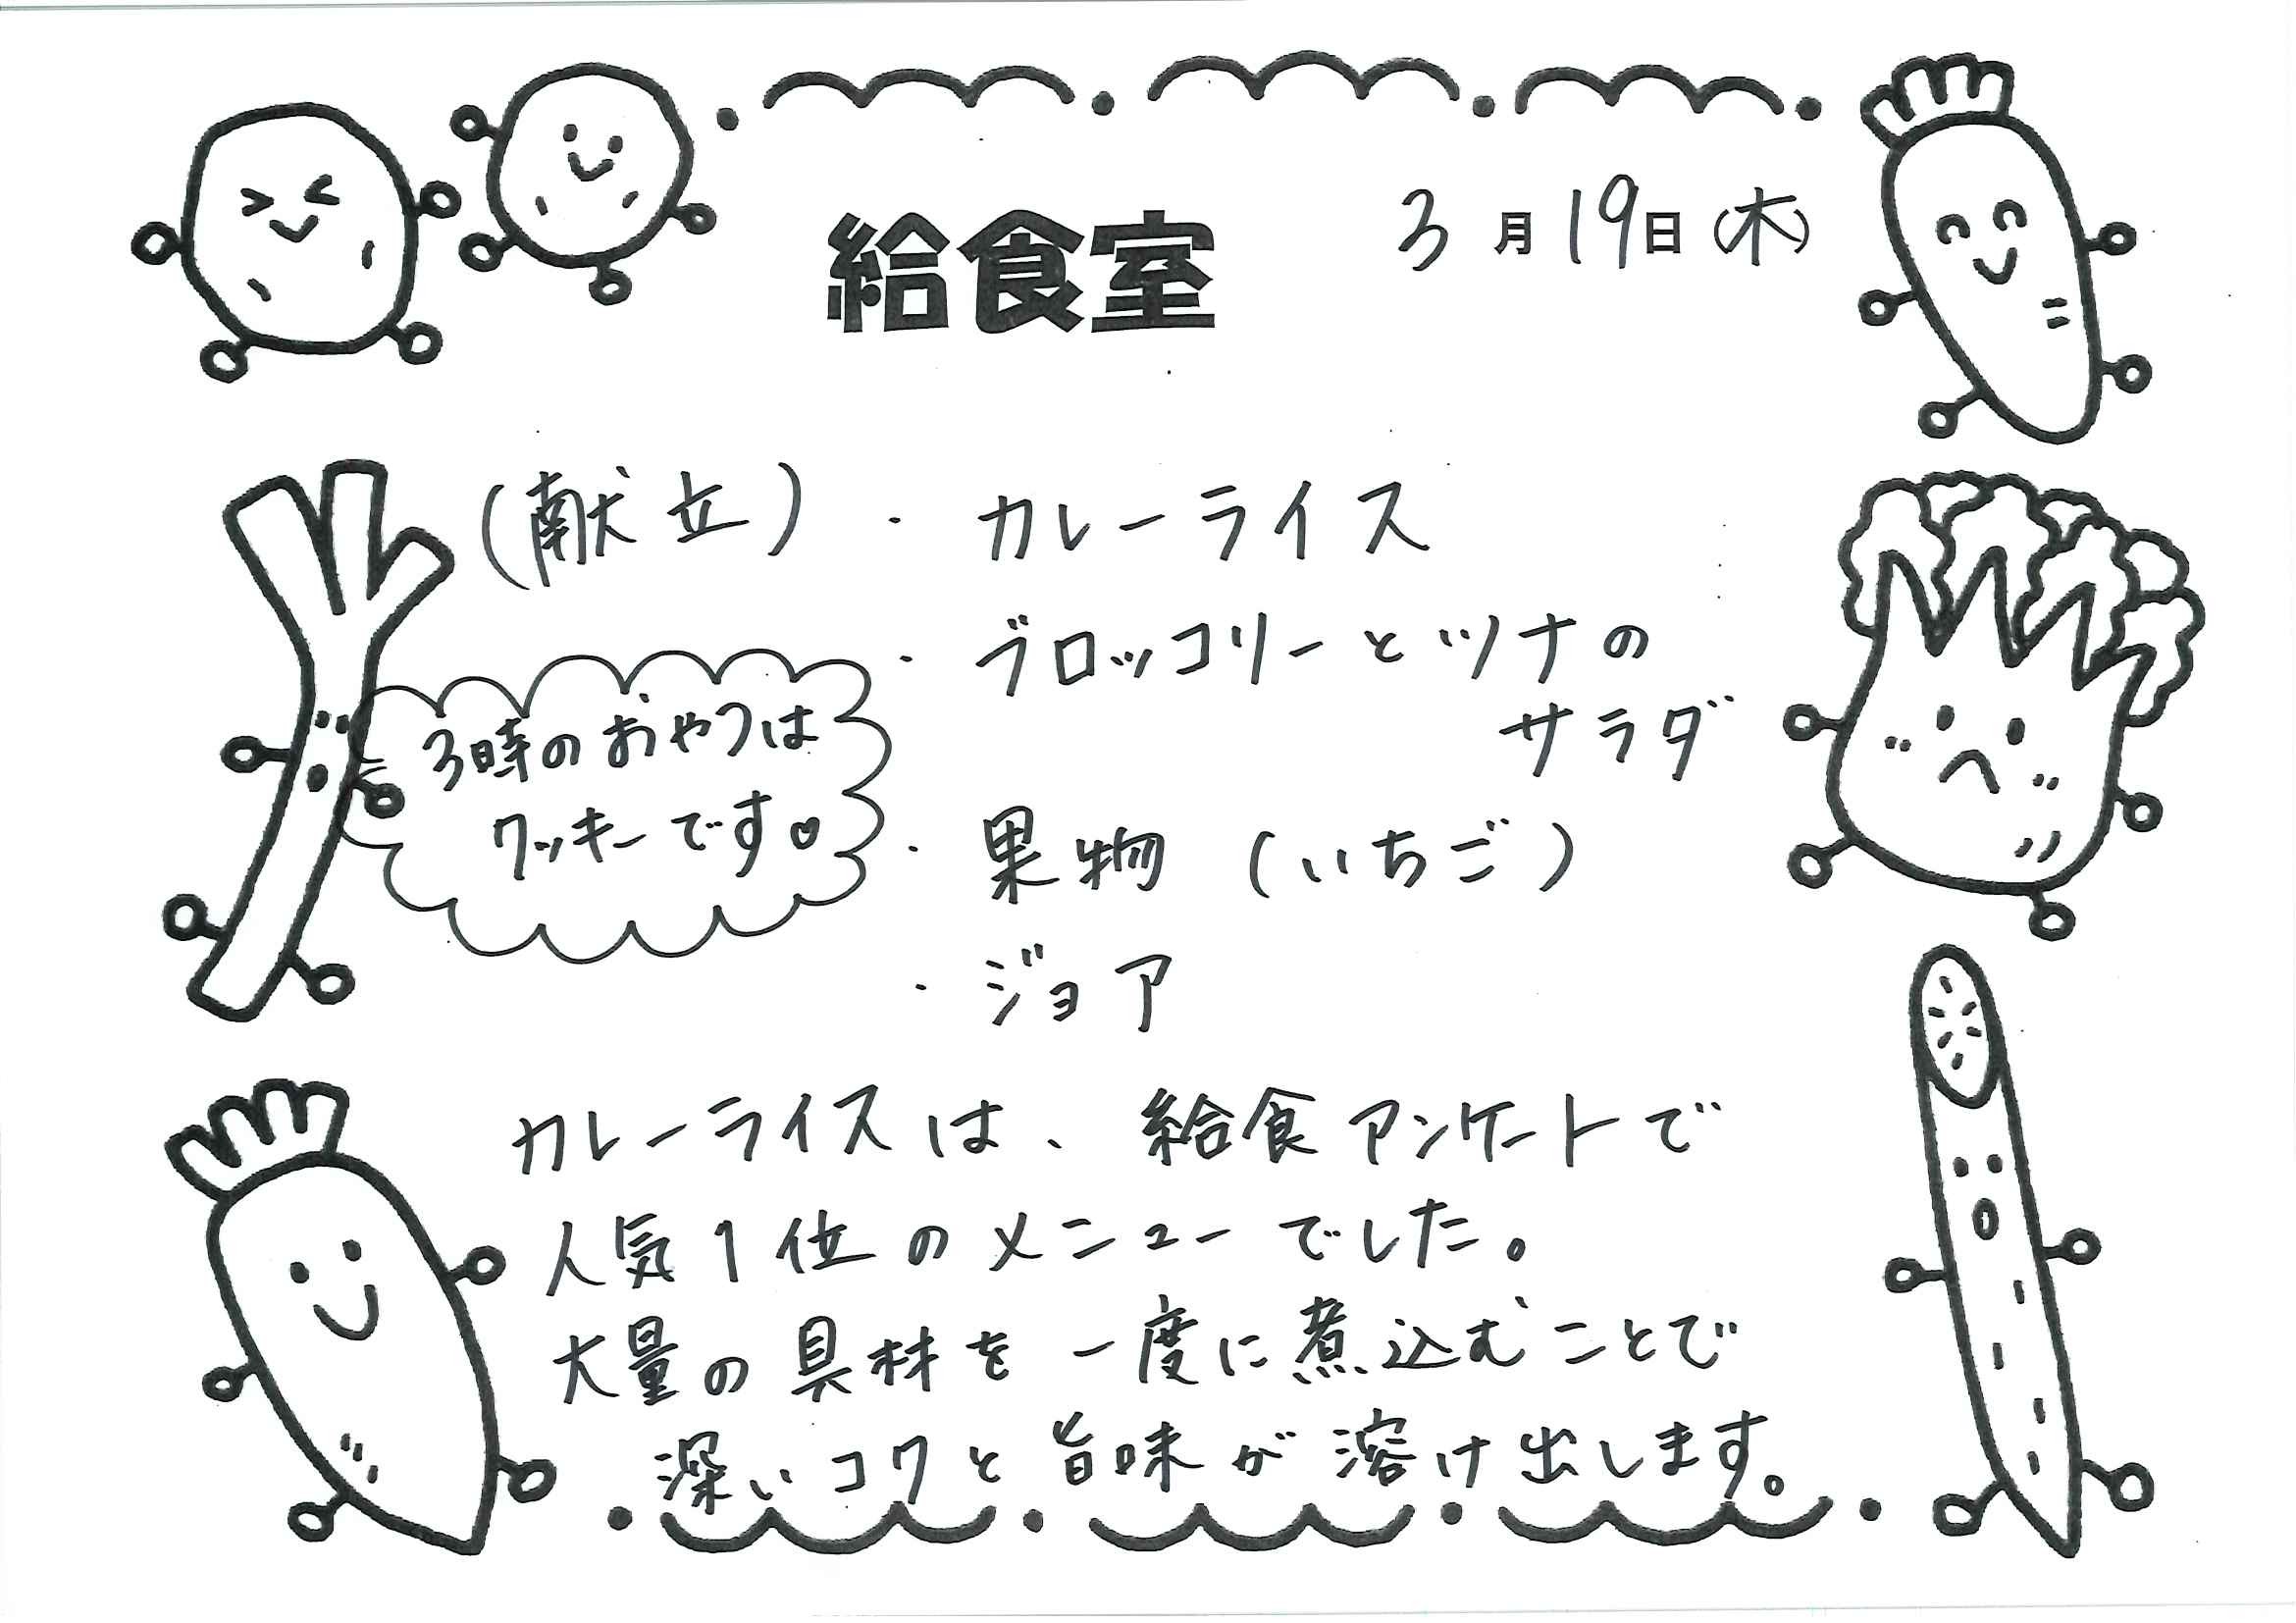 給食室
3月19日(木)
(献立)・カレーライス
・ブロッコリーとツナの
サラダ
・果物(いちご)
・ジョア
3時のおやつは
クッキーです♡
カレーライスは、給食アンケートで
人気1位のメニューでした。
大量の具材を一度に煮込むことで
深いコクと旨味が溶け出します。